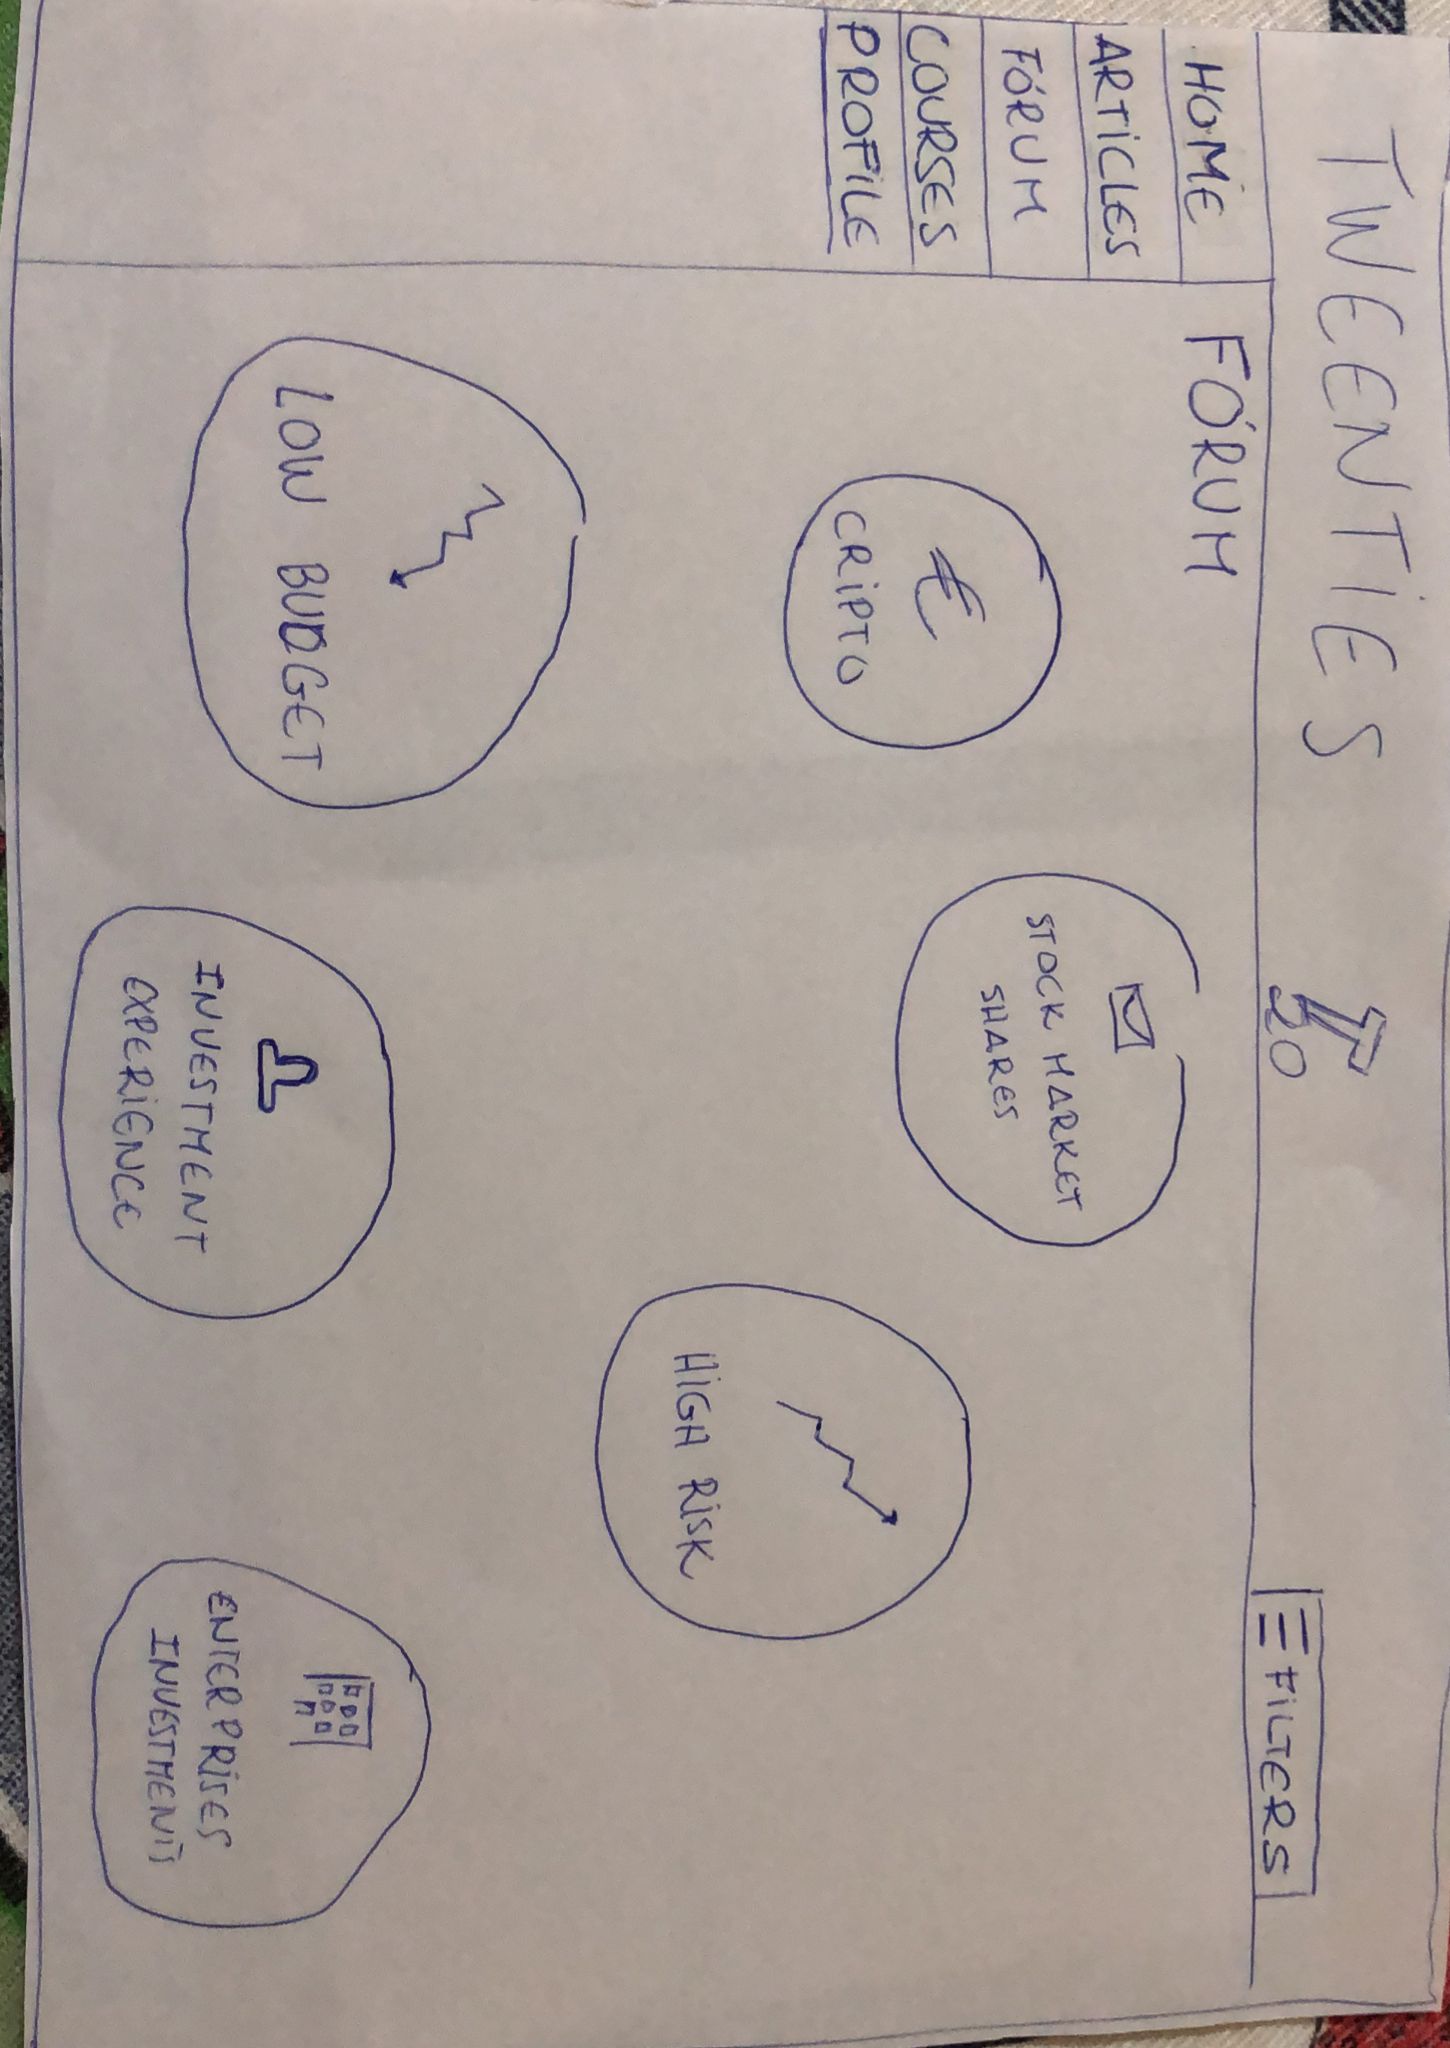 TWEENTIES
20
FILTERS
HOME
ARTICLES
FÓRUM
COURSES
PROFILE
FÓRUM
€
CRIPTO
STOCK MARKET
SHARES
HIGH RISK
LOW BUDGET
INVESTMENT
EXPERIENCE
ENTERPRISES
INVESTMENTS